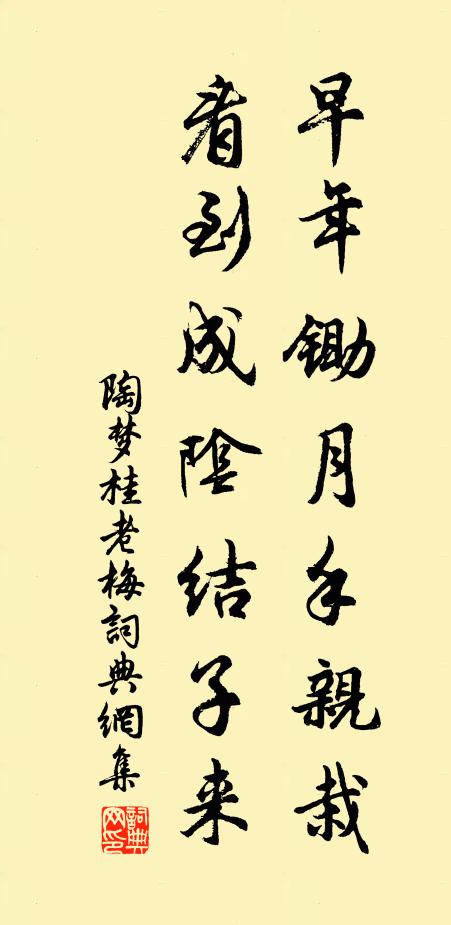 早年鋤月手親栽
看到成陰结子来
陶梦桂老梅詞典網集
詞典网印